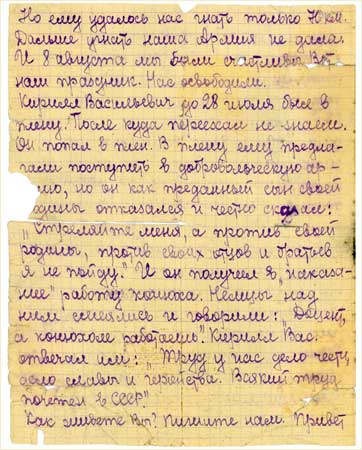 Но ему удалось нас гнать только 70 км.
Дальше угнать наша Армия не дала.
И 8 августа мы были счастливы Вот
наш праздник. Нас освободили.
Кирилл Васильевич до 28 июля был в
плену. После куда переехал не знаем.
Он попал в плен. В плену ему предла-
гали поступить в добровольческую ар-
мию, но он как преданный сын своей
одины отказался и честно сказал:
"Стреляйте меня, а против своей
родины, против своих отцов и братьев
я не пойду." И он получил в "наказа-
ние" работу конюха. Немцы над
ним смеялись и говорили: "Доцент,
а конюхом работаешь". Кирилл Вас.
отвечал им: "Труд у нас дело чести,
дело славы и геройства. Всякий труд
почетен в СССР"
Как живете Вы? Пишите нам. Привет